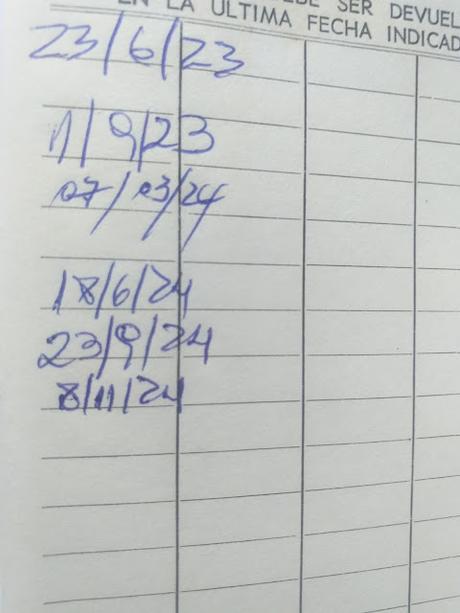 SER DEVUEL
EN LA ULTIMA FECHA INDICAD
23/6/23
1/9/23
07/03/24
18/6/24
23/9/24
8/11/24